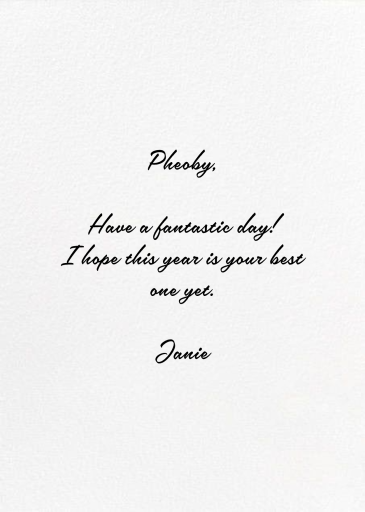 Pheoby,
Have a fantastic day!
I hope this year is your best
one yet.
Janie